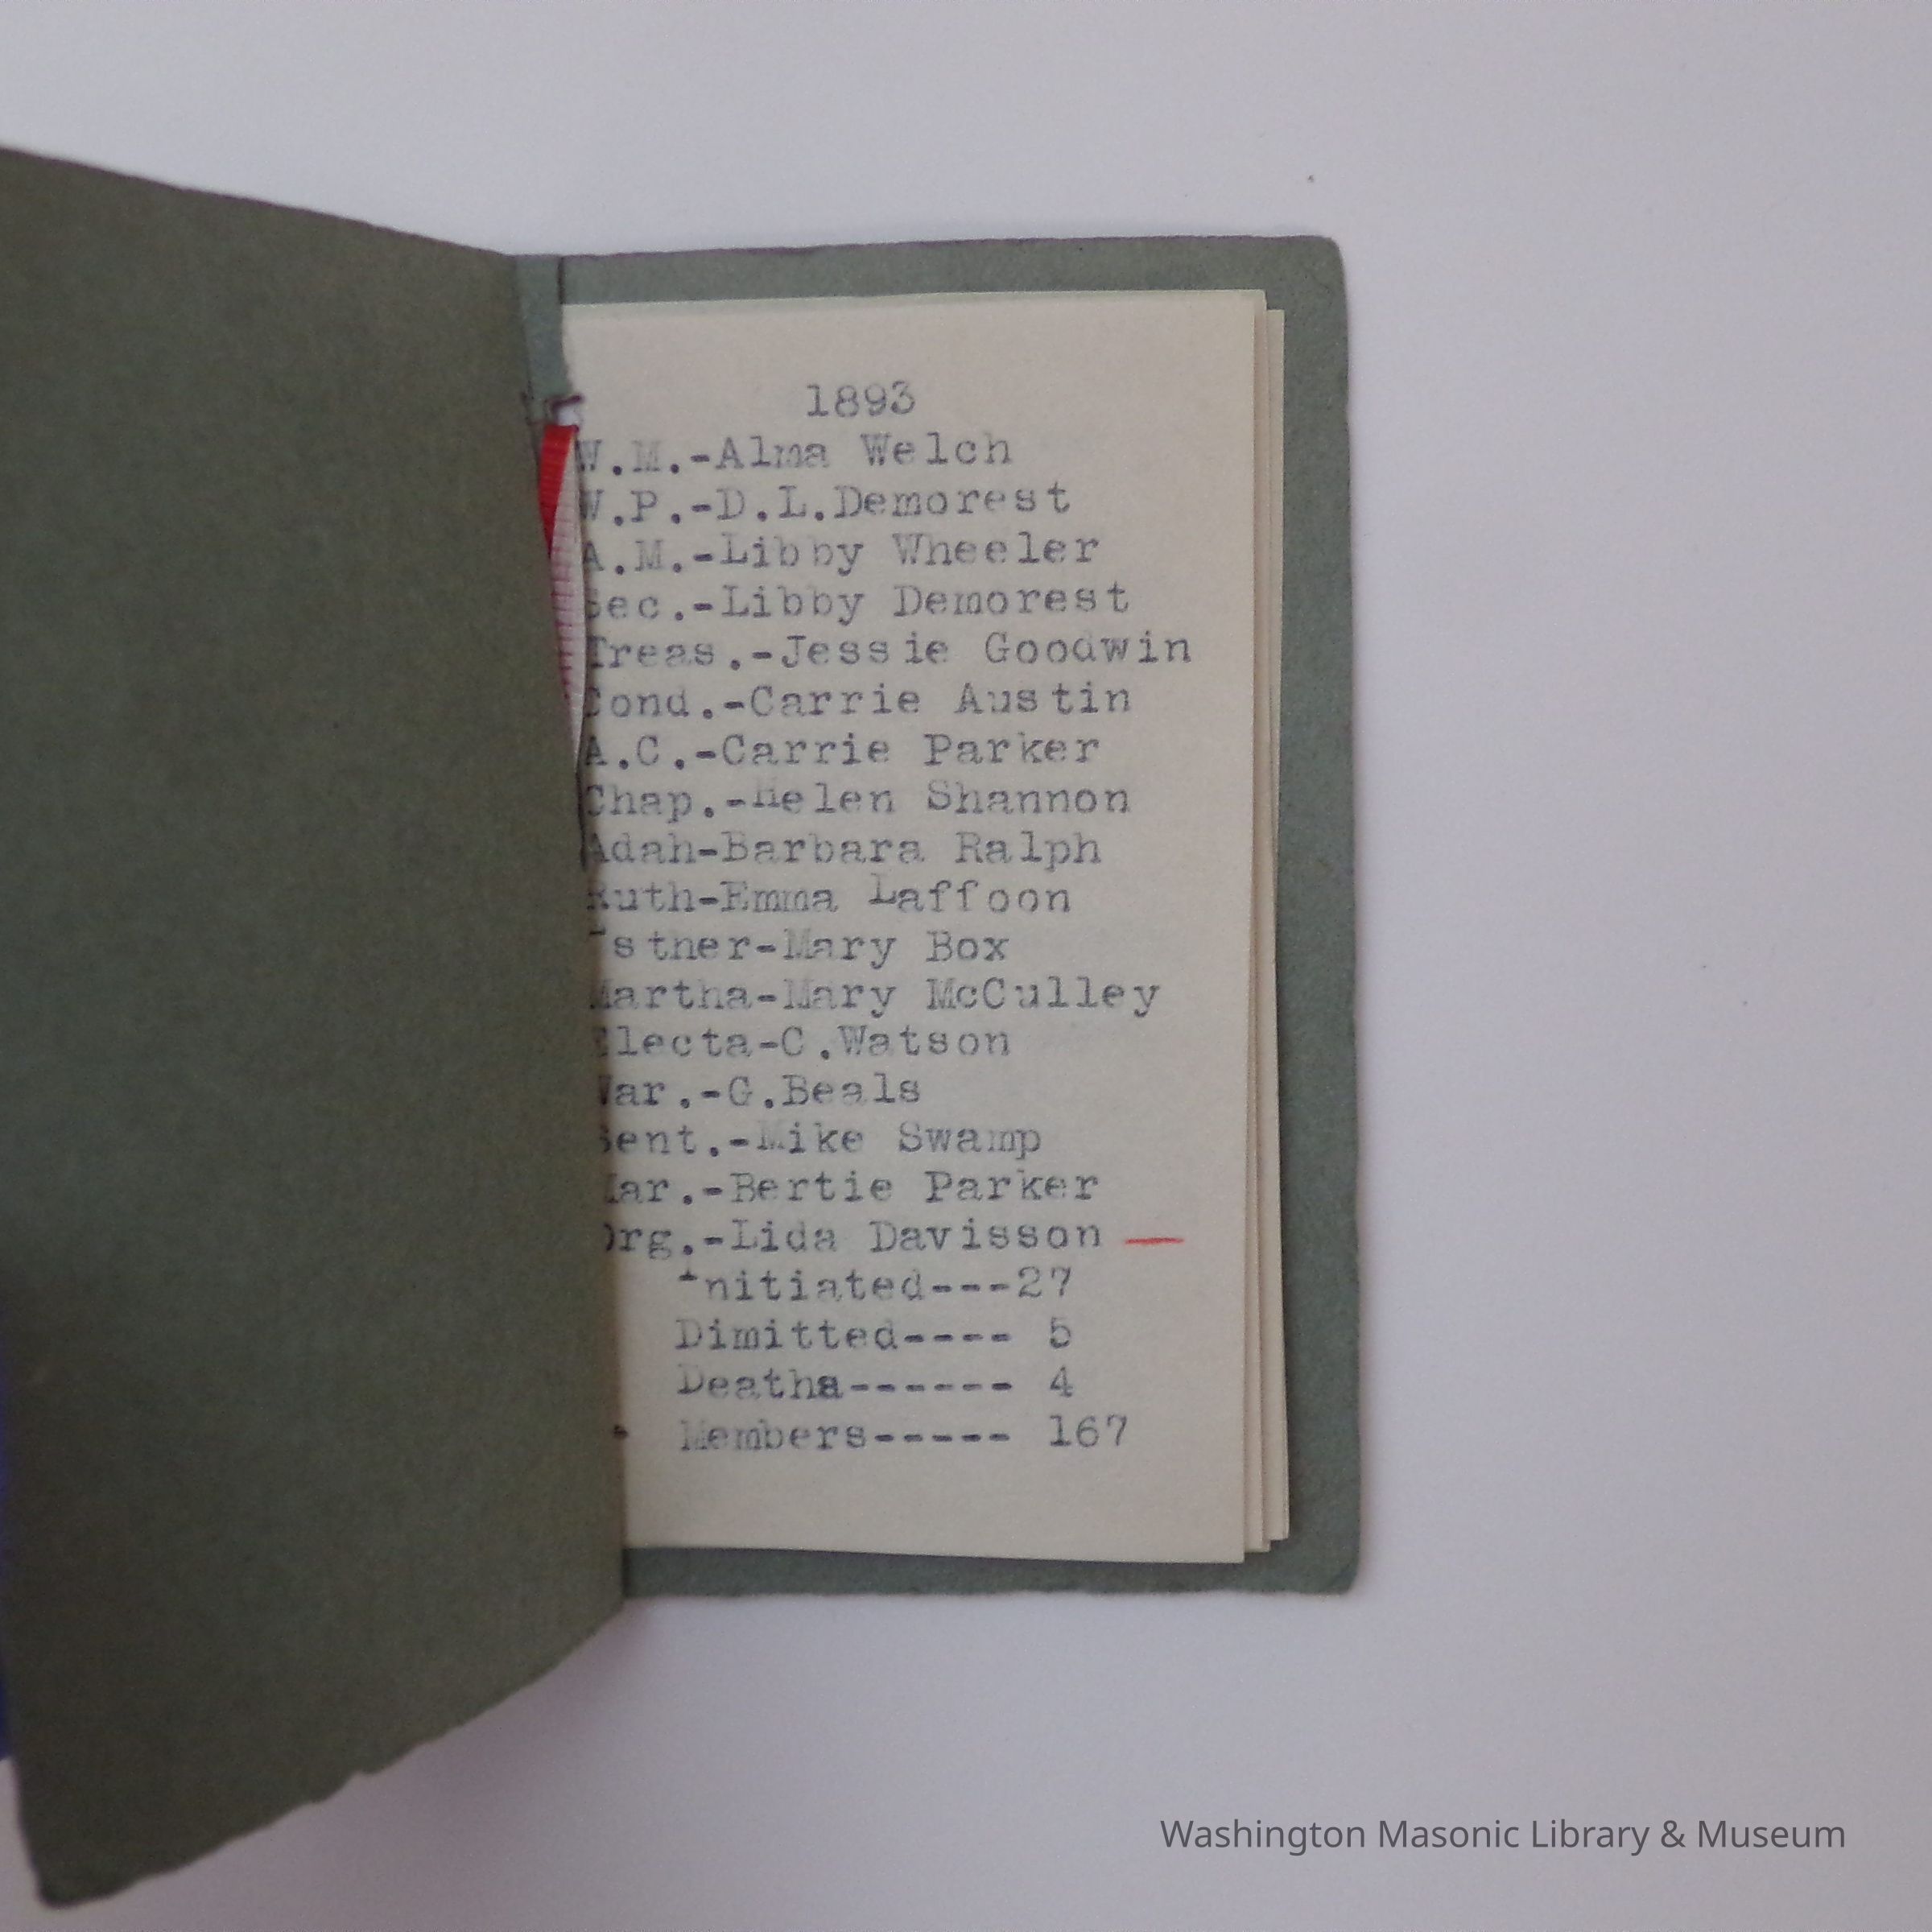 1893
W.M.-Alma Welch
W.P.-D.L.Demorest
A.M.-Libby Wheeler
Sec.-Libby Demorest
Treas.-Jessie Goodwin
Cond.-Carrie Austin
A.C.-Carrie Parker
Chap.-Helen Shannon
Adah-Barbara Ralph
Ruth-Emma Laffoon
Esther-Mary Box
Martha-Mary McCulley
Electa-C.Watson
War.-G.Beals
Sent.-Mike Swamp
Mar.-Bertie Parker
Org.-Lida Davisson —
Initiated---27
Dimitted---- 5
Deaths------ 4
Members----- 167
Washington Masonic Library & Museum